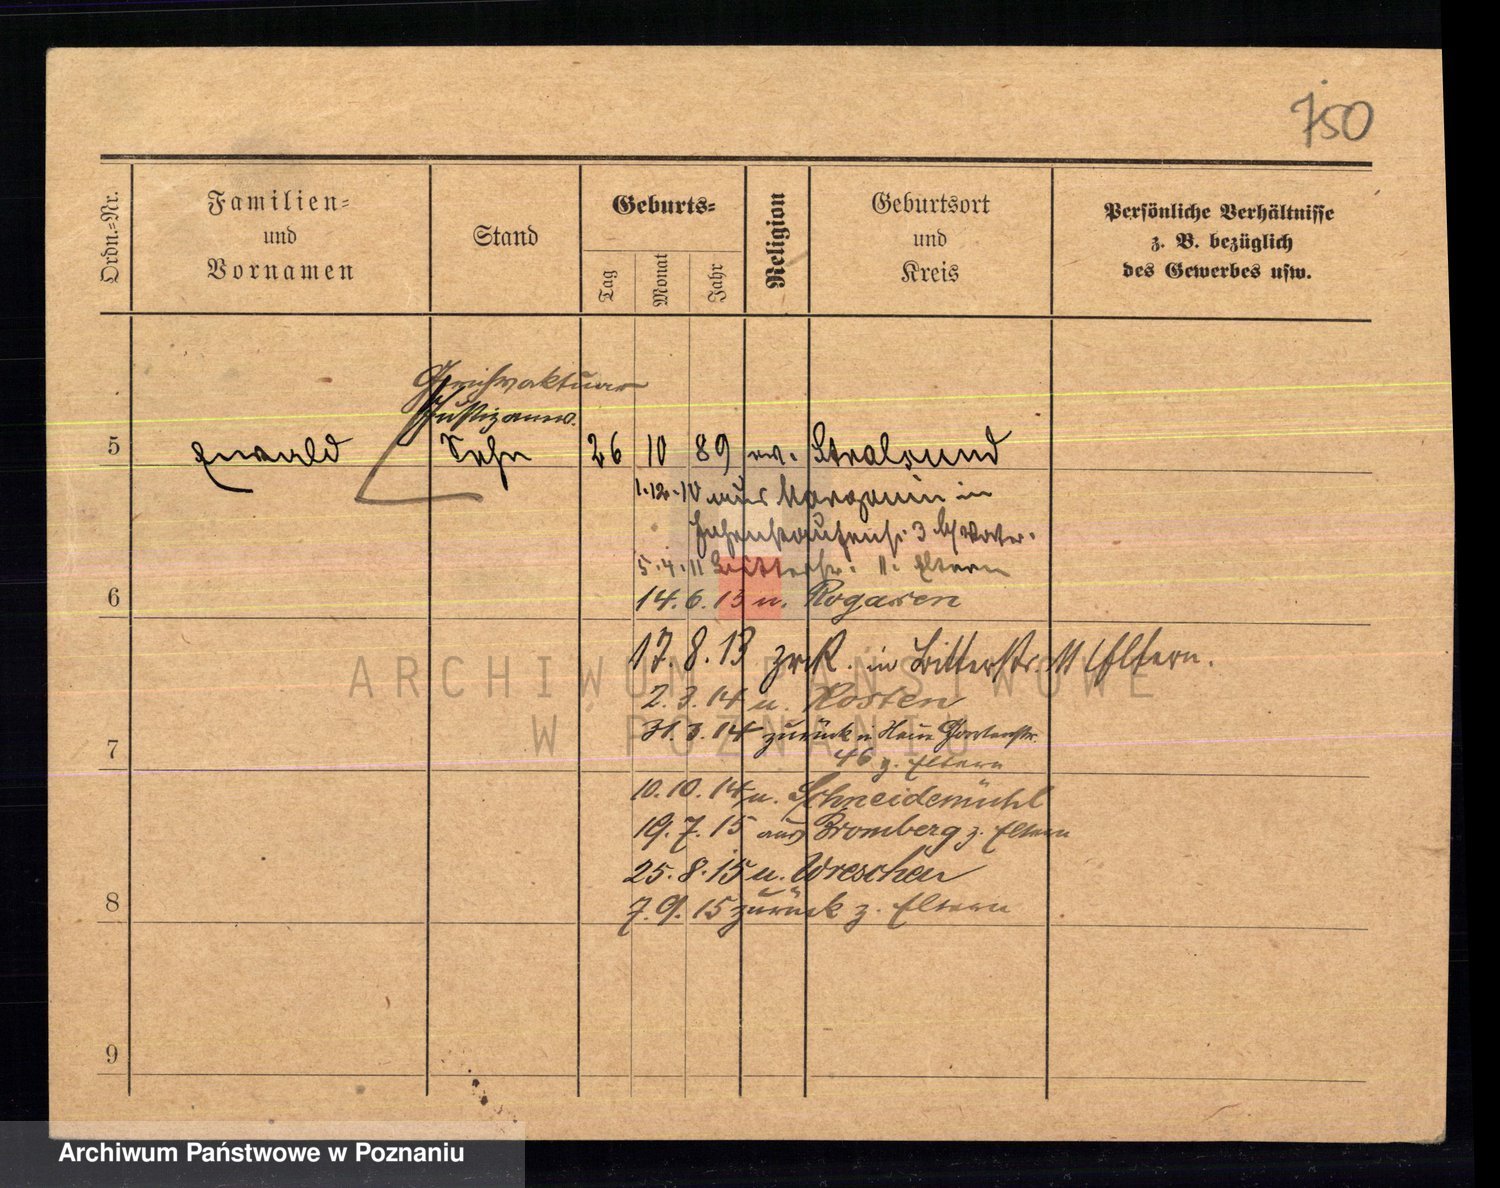 750
Ordn.-Nr.
Familien-
und
Vornamen
Stand
Geburts-
Tag
Monat
Jahr
Religion
Geburtsort
und
Kreis
Persönliche Verhältnisse
z. B. bezüglich
des Gewerbes usw.
Justizanw.
5 Ewald Sohn 26 10 89 ev. Stralsund
1.12.10 aus Margonin in
3 b/ Vater.
5.4.11 Ritterstr. 11. Eltern
6 14.6.13 n. Rogasen
17.8.13 zrck. in Ritterstr. 11 Eltern.
2.3.14 n. Kosten
31.3.14 zurück in Neue Gartenstr.
46 z. Eltern
7
10.10.14 n. Schneidemühl
19.7.15 aus Bromberg z. Eltern
25.8.15 n. Wreschen
8 7.9.15 zurück z. Eltern
9
ARCHIWUM PAŃSTWOWE
W POZNANIU
Archiwum Państwowe w Poznaniu